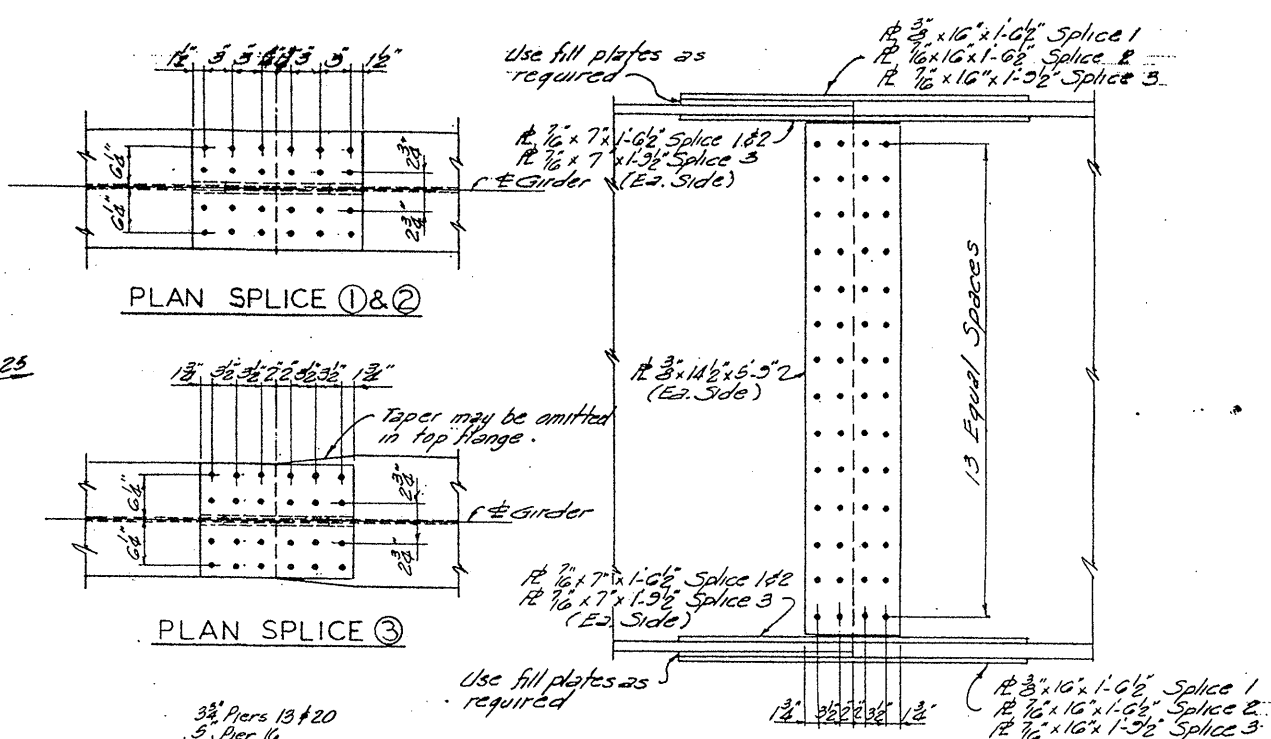 1½" 3" 3" 3" 3" 1½"
6¼"
6¼"
2¾"
2¾"
℄ Girder
PLAN SPLICE ①&②
25
1¾" 3½" 3½" 2" 2" 3½" 3½" 1¾"
Taper may be omitted
in top flange.
6¼"
6¼"
2¾"
2¾"
℄ Girder
PLAN SPLICE ③
3¾" Piers 13 & 20
5" Pier 16
Use fill plates as
required
℄ ⅜" x 16" x 1'-6½" Splice 1
℄ 7/16 x 16" x 1'-6½" Splice 2
℄ 7/16" x 16" x 1'-9½" Splice 3
℄ 7/16" x 7" x 1'-6½" Splice 1&2
℄ 7/16" x 7" x 1'-9½" Splice 3
(Ea. Side)
℄ ⅜" x 14½" x 5'-9"
(Ea. Side)
13 Equal Spaces
℄ 7/16" x 7" x 1'-6½" Splice 1&2
℄ 7/16" x 7" x 1'-9½" Splice 3
(Ea. Side)
Use fill plates as
required
1¾" 3½" 2" 2" 3½" 1¾"
℄ ⅜" x 16" x 1'-6½" Splice 1
℄ 7/16" x 16" x 1'-6½" Splice 2
℄ 7/16" x 16" x 1'-9½" Splice 3